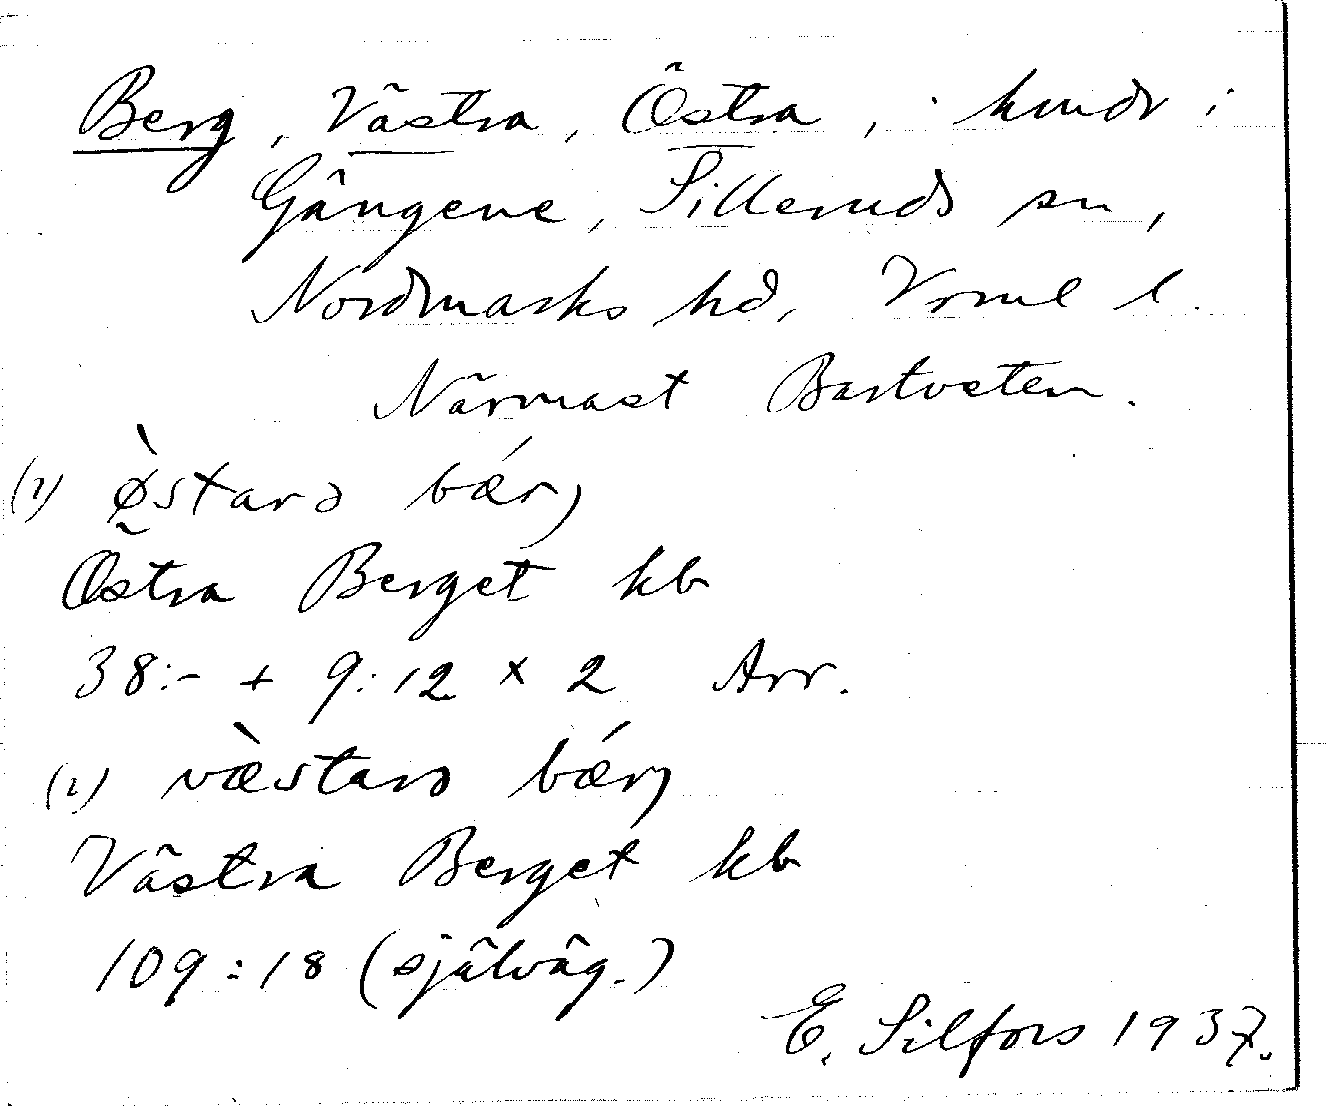 Berg, Västra, Östra, hmdr i
Gängene, Silleruds sn,
Nordmarks hd, Vrml l.
Närmast Bastvaten.
(1) østarə bǽrj
Östra Berget kb
38:- + 9:12 x 2 Arr.
(2) væstarə bǽrj
Västra Berget kb
109:18 (själväg.)
E. Silfors 1937.